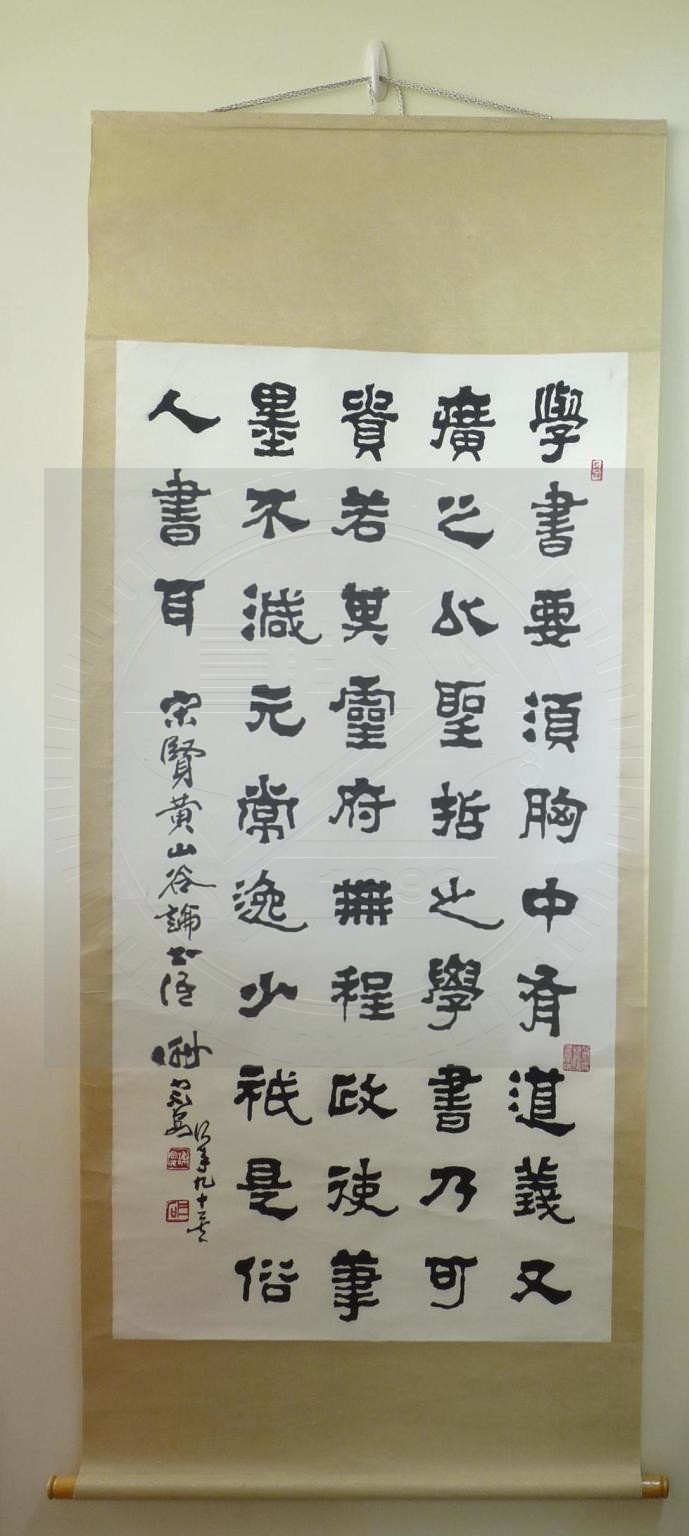 學書要須胸中有道義又
廣之以聖哲之學書乃可
貴若其靈府無程政使筆
墨不減元常逸少祇是俗
人書耳 宋賢黃山谷論書語 謝宗安
時年九十